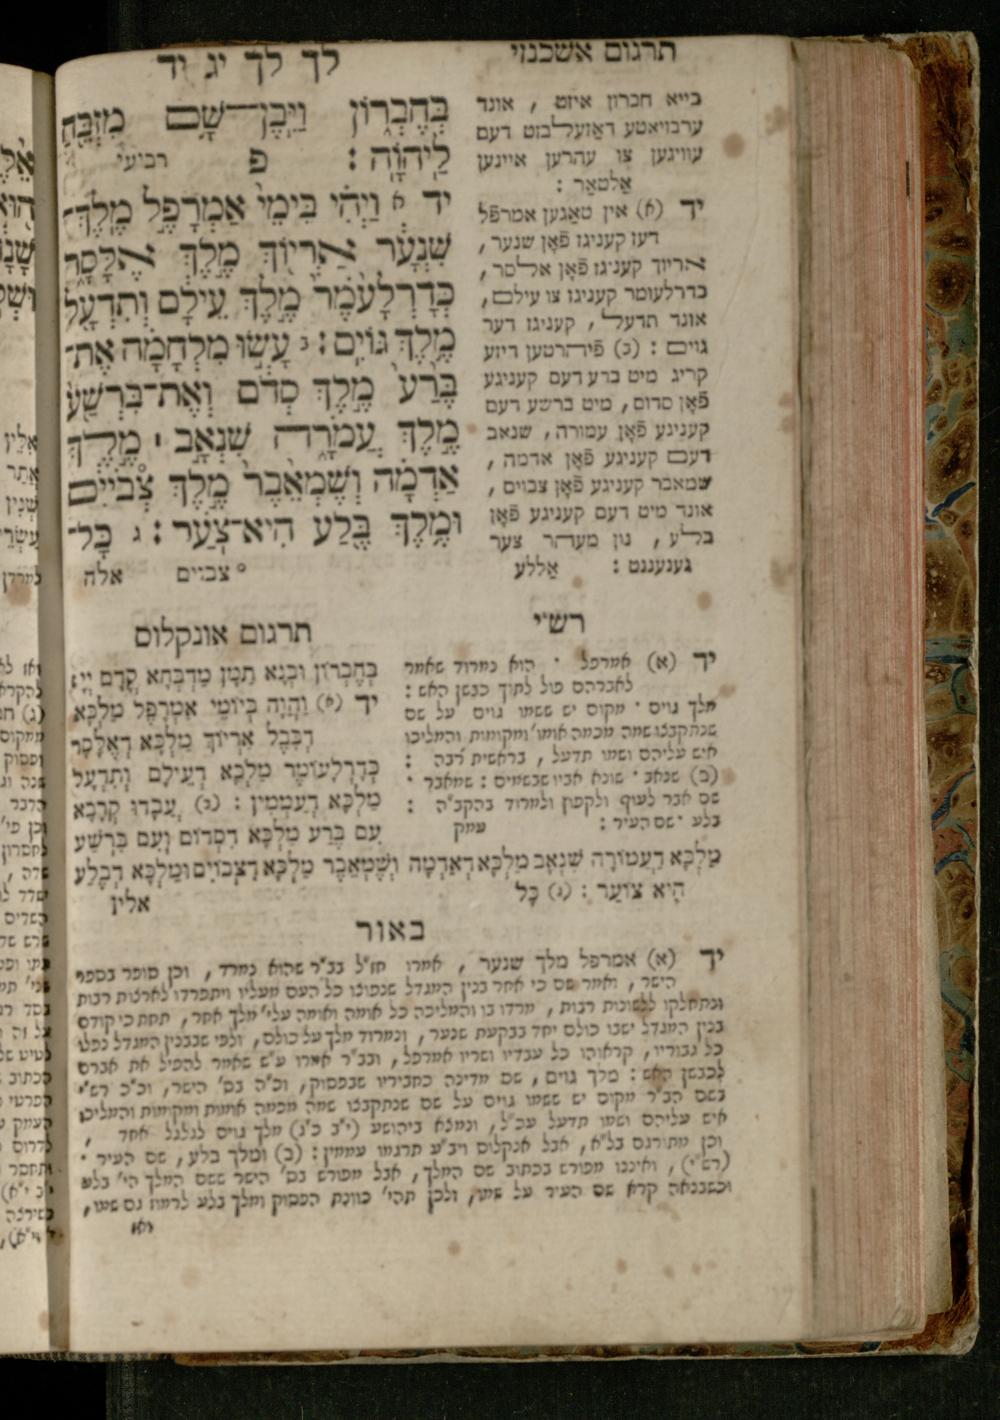 לך לך יג יד
בְּחֶבְרוֹן וַיִּבֶן־שָׁם מִזְבֵּחַ
לַיהוָה : פ רביעי
יד א וַיְהִי בִּימֵי אַמְרָפֶל מֶלֶךְ־
שִׁנְעָר אַרְיוֹךְ מֶלֶךְ אֶלָּסָר
כְּדָרְלָעֹמֶר מֶלֶךְ עֵילָם וְתִדְעָל
מֶלֶךְ גּוֹיִם : ב עָשׂוּ מִלְחָמָה אֶת־
בֶּרַע מֶלֶךְ סְדֹם וְאֶת־בִּרְשַׁע
מֶלֶךְ עֲמֹרָה שִׁנְאָב ׀ מֶלֶךְ
אַדְמָה וְשֶׁמְאֵבֶר מֶלֶךְ צְ֯ביִּים
וּמֶלֶךְ בֶּלַע הִיא־צֹעַר : ג כָּל־
° צבוים אלה
תרגום אשכנזי
בייא חברון איזט , אונד
ערבויאטע דאזעלבזט דעם
עוויגען צו עהרען איינען
אַלטאַר :
יד (א) אין טאַגען אמרפל
דעז קעניגז פֿאָן שנער ,
אריוך קעניגז פֿאָן אלסר ,
כדרלעומר קעניגז צו עילם ,
אונד תדעל , קעניגז דער
גוים : (ב) פֿיהרטען דיזע
קריג מיט ברע דעם קעניגע
פֿאָן סדום , מיט ברשע דעם
קעניגע פֿאָן עמורה , שנאב
דעם קעניגע פֿאָן אדמה ,
שמאבר קעניגע פֿאָן צבוים ,
אונד מיט דעם קעניגע פֿאָן
בלע , נון מעהר צער
גענעננט : אַללע
רש״י
יד (א) אמרפל · הוא נמרוד שאמר
לאברהם פול לתוך כבשן האש :
מלך גוים · מקום יש ששמו גוים על שם
שנתקבצו שמה מכמה אומו' ומקומות והמליכו
איש עליהם ושמו תדעל , בראשית רבה :
(ב) שנאב · שונא אביו שבשמים : שמאבר ·
שם אבר לעוף ולקפוץ ולמרוד בהקב״ה :
בלע · שם העיר : עמק
תרגום אונקלוס
בְּחֶבְרוֹן וּבְנָא תַמָּן מַדְבְּחָא קֳדָם יְיָ :
יד (א) וַהֲוָה בְּיוֹמֵי אַמְרָפֶל מַלְכָּא
דְבָבֶל אַרְיוֹךְ מַלְכָּא דְאֶלָּסָר
כְּדָרְלָעוֹמֶר מַלְכָּא דְעֵילָם וְתִדְעָל
מַלְכָּא דְעַמְמִין : (ב) עֲבָדוּ קְרָבָא
עִם בֶּרַע מַלְכָּא דִסְדוֹם וְעִם בִּרְשַׁע
מַלְכָּא דַעֲמוֹרָה שִׁנְאָב מַלְכָּא דְאַדְמָה וְשֶׁמְאֵבֶר מַלְכָּא דִצְבוֹיִם וּמַלְכָּא דְבֶלַע
הִיא צוֹעַר : (ג) כָּל אלין
באור
יד (א) אמרפל מלך שנער , אמרו חז״ל בב״ר שהוא נמרד , וכן סופר בספר
הישר , ואמר שם כי אחר בנין המגדל שנפוצו כל העם מעליו ויתפרדו לארצות רבות
ונתחלקו ללשונות רבות , מרדו בו והמליכה כל אומה ואומה עלי' מלך אחר , תחת כי קודם
בנין המגדל ישבו כולם יחד בבקעת שנער , ונמרוד מלך על כולם , ולפי שבבנין המגדל נפלו
כל גבוריו , קראוהו כל עבדיו ושריו אמרפל , ובב״ר אמרו ע״ש שאמר להפיל את אברם
לכבשן האש : מלך גוים , שם מדינה כחביריו שבפסוק , וכ״ה בס' הישר , וכ״כ רש״י
בשם הב״ר מקום יש ששמו גוים על שם שנתקבצו שמה מכמה אומות ומקומות והמליכו
איש עליהם ושמו תדעל עכ״ל , ונמצא ביהושע (י״ב כ״ג) מלך גוים לגלגל אחד ,
וכן מתורגם בל״א , אבל אנקלוס ויב״ע תרגמו עממין : (ב) ומלך בלע , שם העיר ·
(רש״י) , ואיננו מפורש בכתוב שם המלך , אבל מפורש בס' הישר ששם המלך הי' בלע
וכשבנאה קרא שם העיר על שמו , ולכן תהי' כוונת הפסוק ומלך בלע לרמוז גם שמו ,